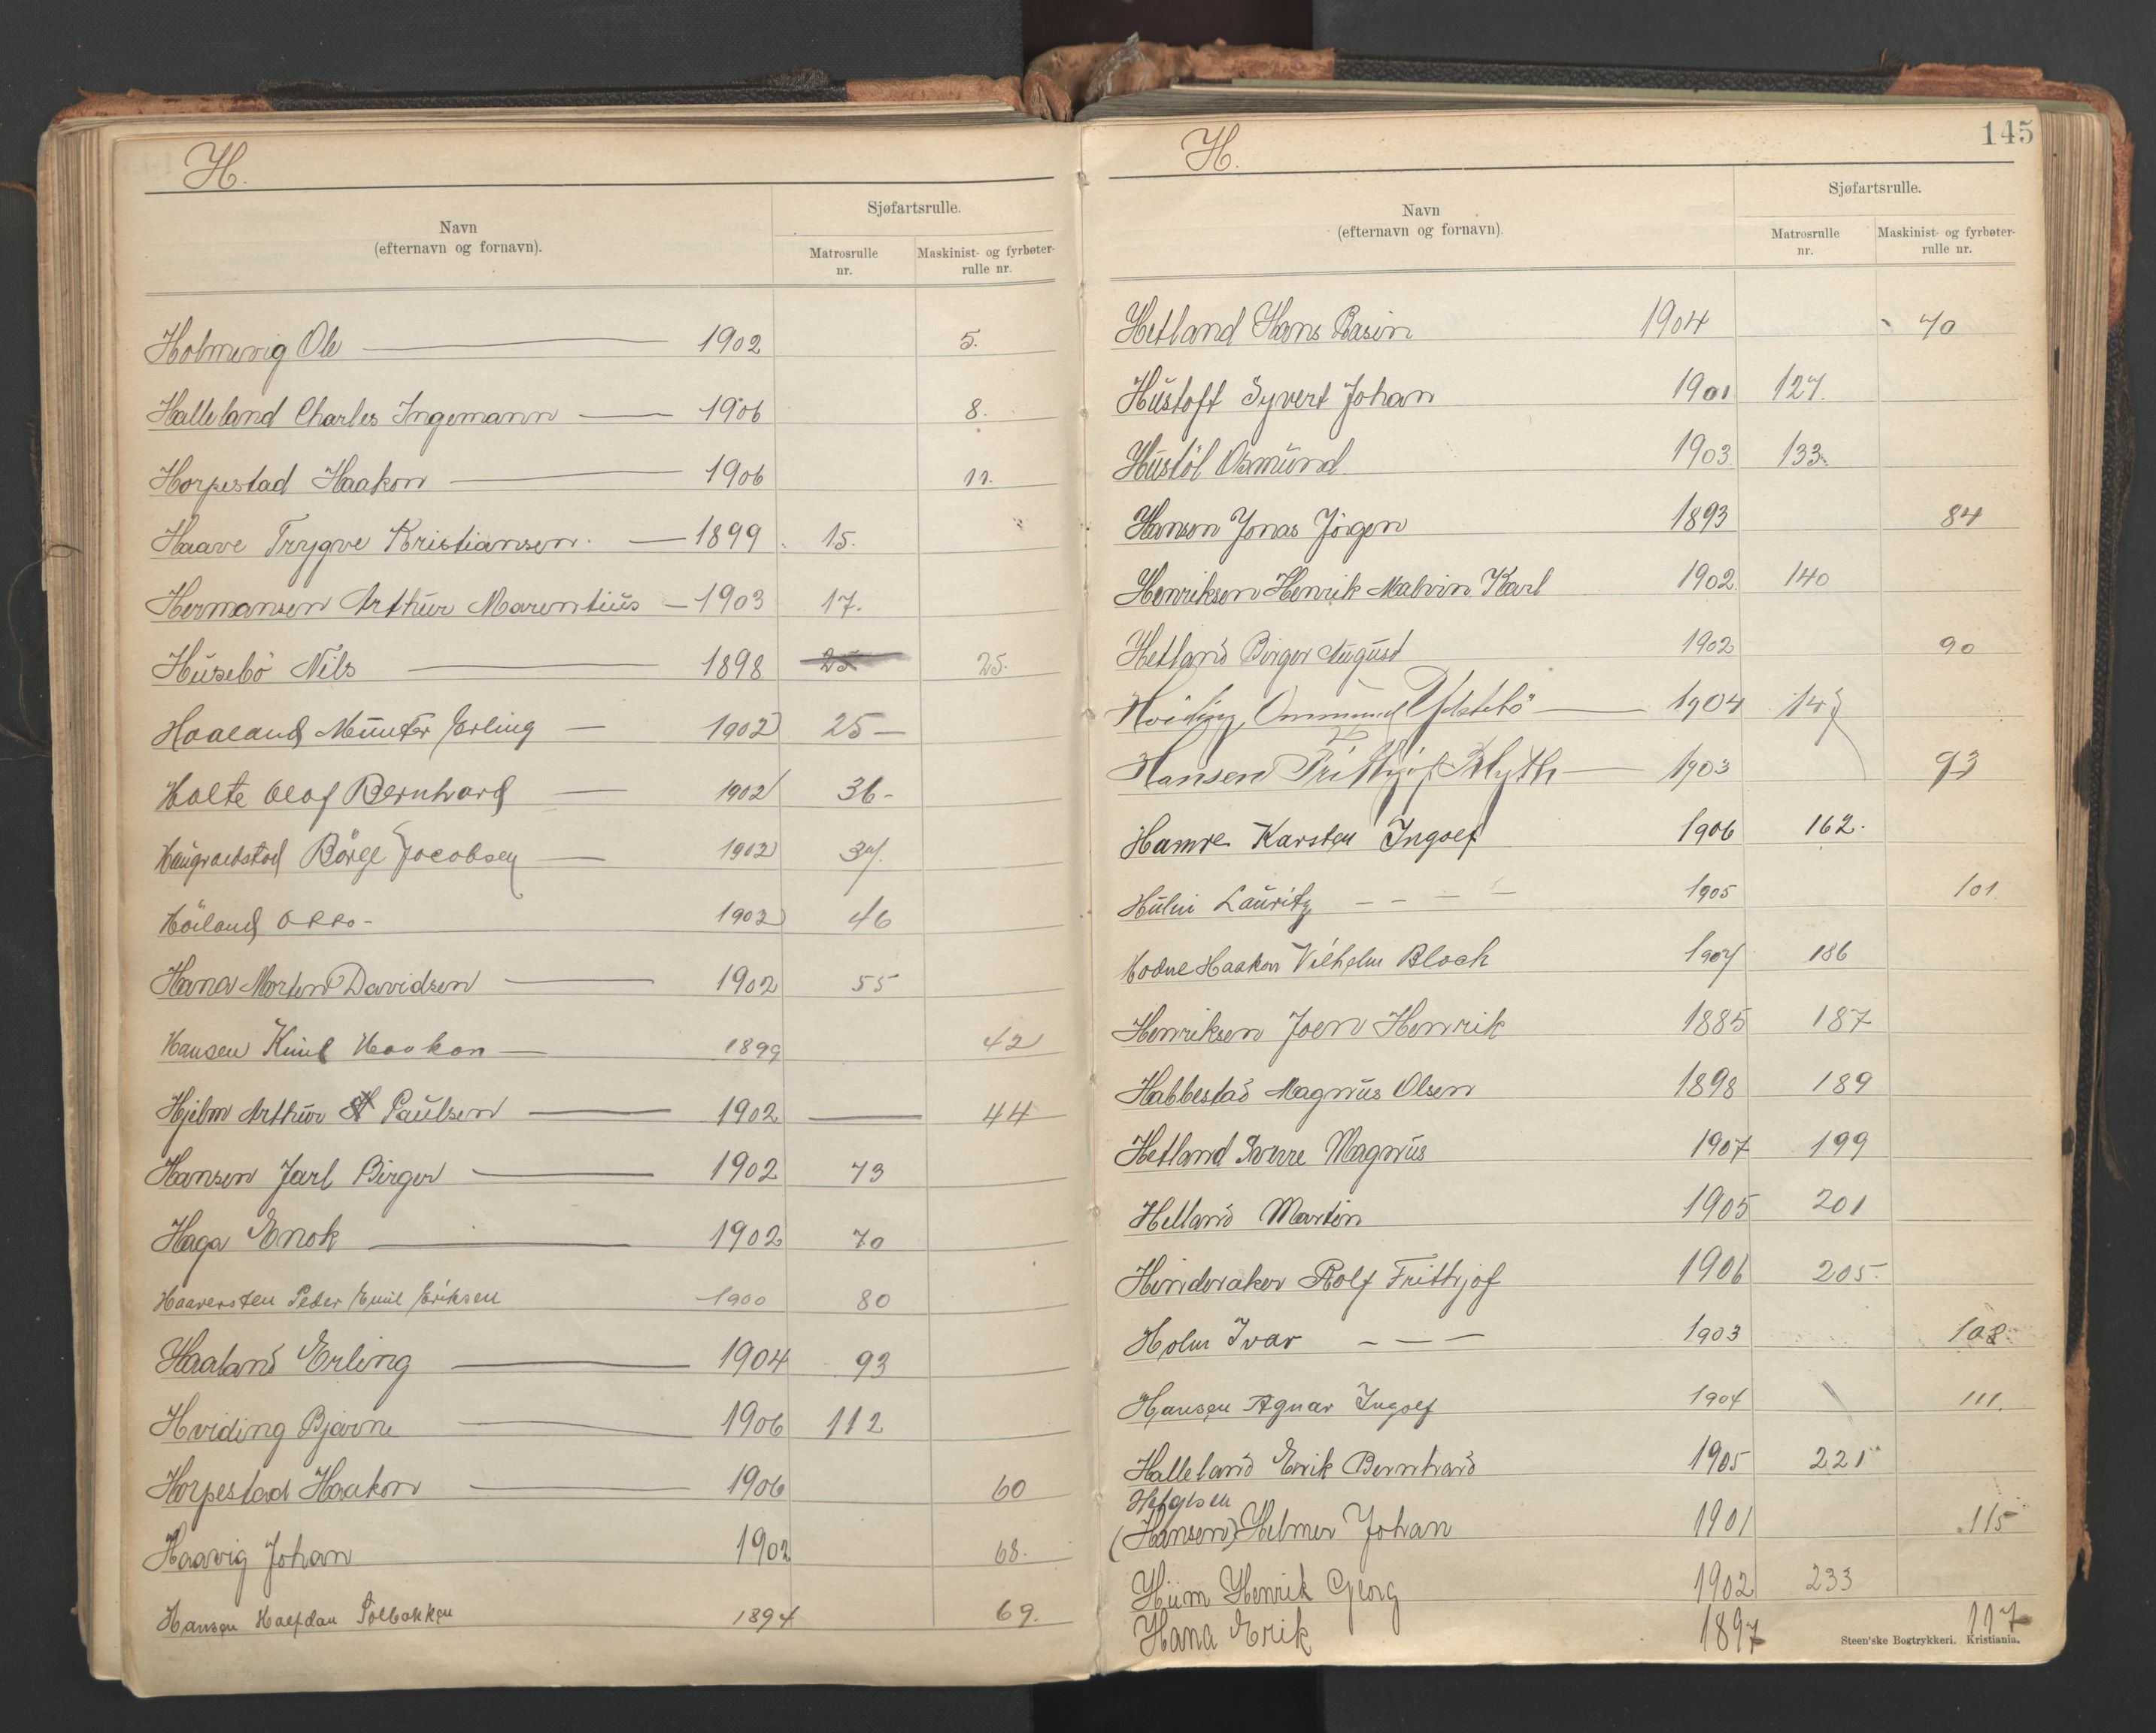 H.
Navn
(efternavn og fornavn).
Sjøfartsrulle.
Matrosrulle nr.
Maskinist- og fyrbøter-rulle nr.
Holmevig Ole 1902 5.
Halleland Charles Ingemann 1906 8.
Horpestad Haakon 1906 11.
Haave Trygve Kristiansen. 1899 15.
Hermansen Arthur Marentius 1903 17.
Husebö Nils 1898 25 25.
Haaland Münter Erling 1902 25
Holte Olaf Bernhard 1902 36
Börge Jacobsen 1902 37.
Höiland Otto 1902 46
Hana Morten Davidsen 1902 55
Hansen Knut Haakon 1899 42
Hjelm Arthur Paulsen 1902 44
Hansen Jarl Birger 1902 73
Haga Enok 1902 70
Haaversten Peder Emil Eriksen 1900 80
Haaland Erling 1904 93
Hviding Bjarne 1906 112
Horpestad Haakon 1906 60
Haavig Johan 1902 68.
Hansen Halfdan Solbakken 1894 69.
H.
145
Navn
(efternavn og fornavn)
Sjøfartsrulle.
Matrosrulle nr.
Maskinist- og fyrbøter-rulle nr.
Hetland Hans Rasin 1904 70
Hustoft Syvert Johan 1901 127.
Hustöl Osmund 1903 133.
Hansen Jonas Jörgen 1893 84
Henriksen Henrik Malvin Karl 1902 140
Hetland Birger August 1902 90
Hviding, Ommund 1904
Hansen Frithjof Blyth 1903 93
Hamre Karsten Ingolf 1906 162.
Lauritz 1905 101
Hodne Haakon Vilhelm Bloch 1907 186
Henriksen Joen Henrik 1885 187
Habbestad Magnus Olsen 1898 189
Hetland Sverre Magnus 1907 199
Helland Martin 1905 201
Hinderaker Rolf Frithjof 1906 205.
Holm Ivar 1903 108.
Hansen Agnar Ingolf 1904 111.
Halleland Erik Bernhard 1905 221
Helgesen
(Hansen) Helmer Johan 1901 115
Hüm Henrik Georg 1902 233
Hana Erik 1897 117
Steen'ske Bogtrykkeri. Kristiania.